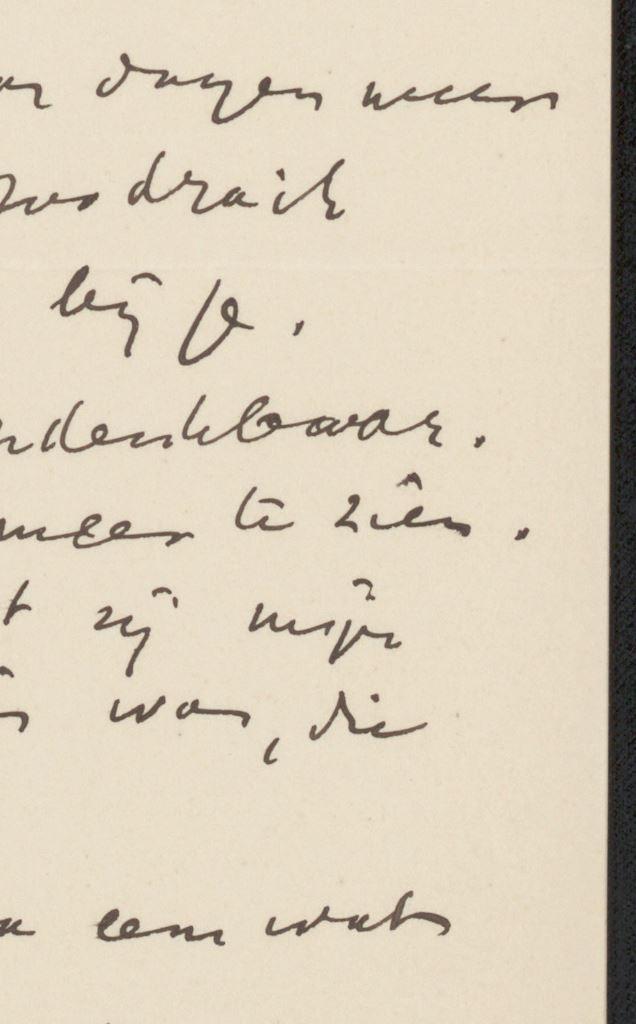 dagen weer
zoodra ik
bij je.
ndenkbaar.
meer te zien.
t zij mijn
was, die
eens wat